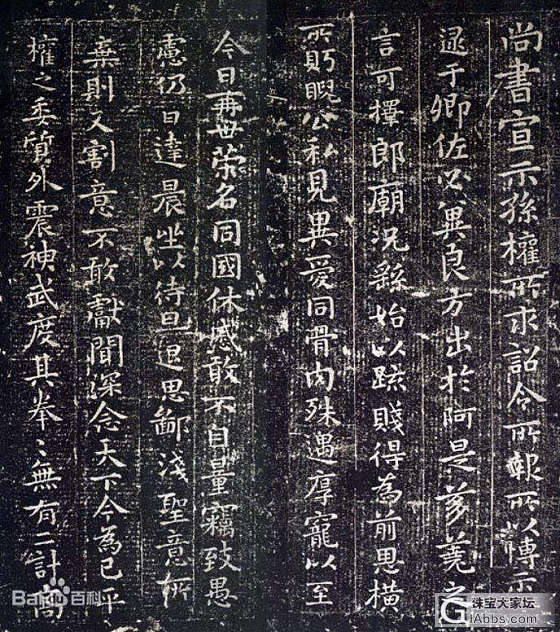 尚書宣示孫權所求詔令所報所以博示
逮于卿佐必冀良方出於阿是芻蕘之
言可擇郎廟況繇始以疏賤得為前恩橫
所眄睨公私見異愛同骨肉殊遇厚寵以至
今日再世榮名同國休慼敢不自量竊致愚
慮仍日達晨坐以待旦退思鄙淺聖意所
棄則又割意不敢獻聞深念天下今為已平
權之委質外震神武度其拳〻無有二計高
Baidu百科
珠宝大家坛
GIAbbs.com